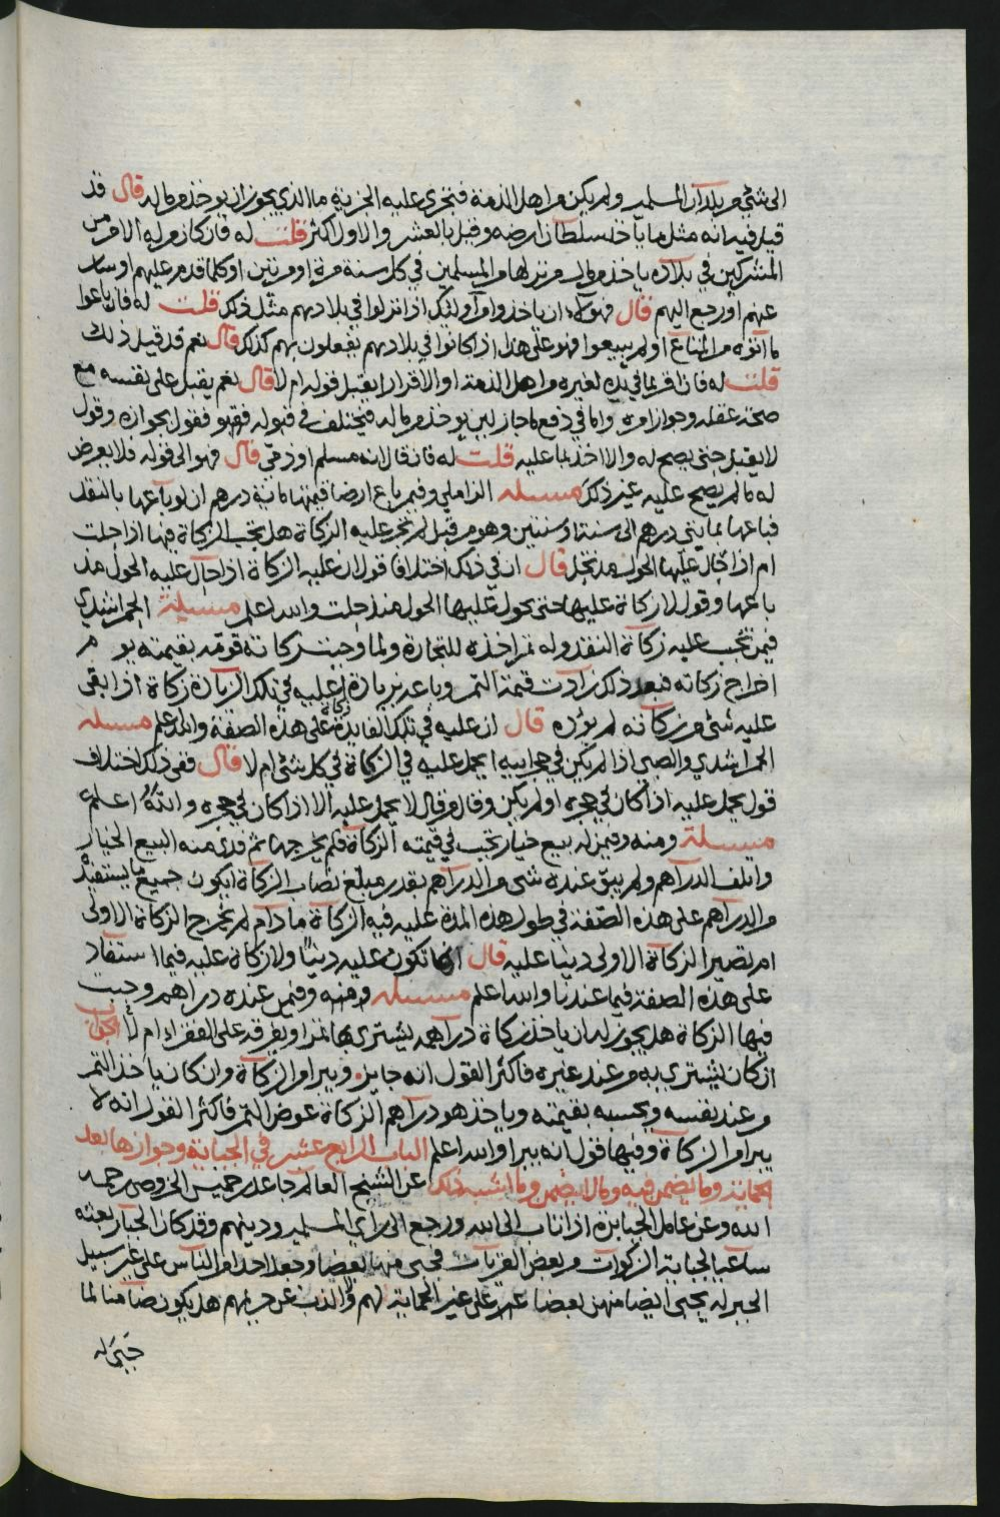 الى شئ من بلدان المسلمين ولم يكن من اهل الذمة فتجري عليه الجزية ما الذي يجوز ان يوخذ من ماله قال قد
قيل فيه انه مثل ما ياخذ سلطان ارضه وقيل بالعشر والاول اكثر قلت له فان كان من له الامر من
المشركين في بلاده ياخذ من مال من نزلها من المسلمين في كل سنة مرة او مرتين او كلما قدم عليهم او سار
عنهم او رجع اليهم قال فهو له ان ياخذوا من اولئك اذا نزلوا في بلادهم مثل ذلك قلت له فان باعوا
ما اتوه من المتاع او لم يبيعوا فهو على هذا اذا كانوا في بلادهم يفعلون بهم كذلك قال نعم قد قيل ذلك
قلت له فان اقر بما في يده لغيره من اهل الذمة او الاقرار ايقبل قوله ام لا قال نعم يقبل على نفسه مع
صحة عقله وجواز امره واما في دفع ما جاز لمن يوخذ من ماله فيختلف في قبوله فقول بجوازه وقول
لا يقبل حتى يصح له والا اخذ بما عليه قلت له فان قال انه مسلم او ذمي قال فهو الى قوله فلا يعرض
له ما لم يصح عليه غير ذلك مسئله الزاملي وفيمن باع ارضا قيمتها مائة درهم ان لو باعها بالنقد
فباعها بمايتي درهم الى سنة او سنتين وهو من قبل لم تجر عليه الزكاة هل تجب الزكاة فيها اذا حلت
ام اذا حال عليها الحول مذ تحل قال ان في ذلك اختلافا قول ان عليه الزكاة اذا حال عليه الحول مذ
باعها وقول لا زكاة عليها حتى يحول عليها الحول منذ حلت والله اعلم مسئلة الحمراشدي
فيمن تجب عليه زكاة النقد وله تمر اخذه للتجارة ولما وجبت زكاته قومه بقيمته يوم
اخراج زكاته فبعد ذلك زادت قيمة التمر وباعه بزيادة اعليه في تلك الزيادة زكاة اذا بقي
عليه شئ من زكاته لم يؤده قال ان عليه في تلك الفايدة زكاة على هذه الصفة والله اعلم مسئله
الحمراشدي والصبي اذا لم يكن في حجر ابيه ايحمل عليه في الزكاة في كل شئ ام لا قال ففي ذلك اختلاف
قول يحمل عليه اذا كان في حجره او لم يكن وقال من قال لا يحمل عليه الا اذا كان في حجره والله اعلم
مسئلة ومنه وفيمن له بيع خيار تجب في قيمته الزكاة فلم يخرجها ثم فدي منه البيع الخيار
واتلف الدراهم ولم يبق عنده شئ من الدراهم بقدر مبلغ نصاب الزكاة ايكون جميع ما يستفيد
من الدراهم على هذه الصفة في طول هذه المدة عليه فيه الزكاة ما دام لم يخرج الزكاة الاولى
ام تصير الزكاة الاولى دينا عليه قال انها تكون عليه دينا ولا زكاة عليه فيما استفاد
على هذه الصفة فيما عندنا والله اعلم مسئله ومنه وفيمن عنده دراهم وجبت
فيها الزكاة هل يجوز له ان ياخذ زكاة دراهمه يشتري بها تمرا ويفرقه على الفقراء ام لا الجواب
ان كان يشتري به من عند غيره فاكثر القول انه جايز ويبرا من الزكاة وان كان ياخذ التمر
من عند نفسه ويحسبه بقيمته وياخذ هو دراهم الزكاة عوض التمر فاكثر القول انه لا
يبرا من الزكاة وفيها قول انه يبرا والله اعلم الباب الرابع عشر في الجباية وجوازها بعد
الحماية وما يضمن فيه وما لا يضمن وما اشبه ذلك عن الشيخ العالم جاعد بن خميس الخروصي رحمه
الله وعن عامل الجبابرة اذا تاب الى الله ورجع الى راي المسلمين ودينهم وقد كان الجبار بعثه
ساعيا لجباية الزكوات من بعض القريات فجبى منها بعضا وجعل احدا من الناس على غير سبيل
الجبر له يجبي ايضا منهن بعضا غير على غير الحماية لهم والذب عن حريمهم هل يكون ضامنا لما
جبى له